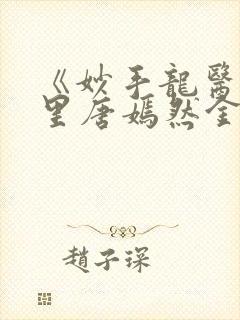 《妙手龍醫
里唐嫣然全
趙子琛